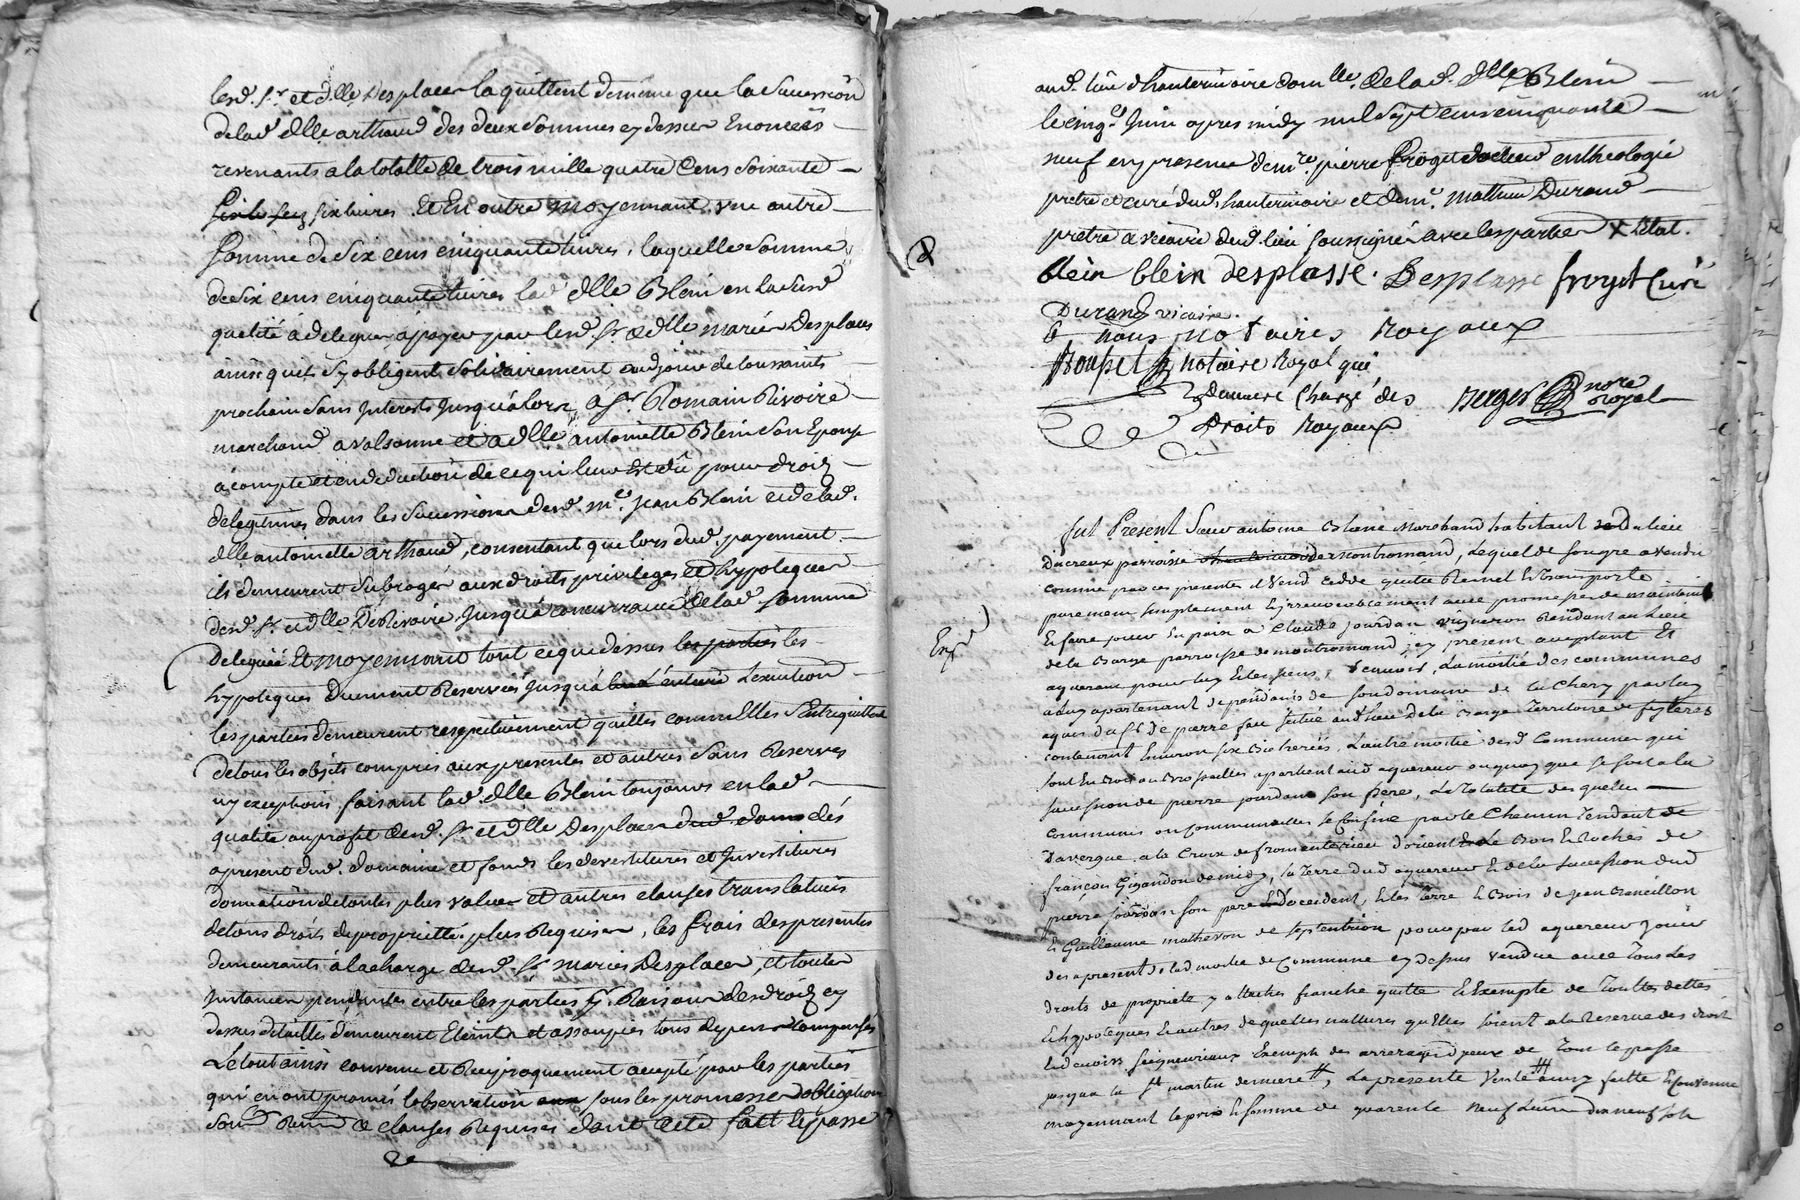 lesd. sr. et dlle Desplaces la quittent de meme que la Succession
de lad. dlle arthaud des deux Sommes cy dessus Enoncées
revenants a la totalle de trois mille quatre Cens Soixante
six livres Et En outre Moyennant une autre
Somme de Six cens cinquante livres, laquelle Somme
de Six cens cinquante livres lad. dlle Blein en la Susd.
qualité à deleguer à payer par lesd. sr. & dlle mariés Desplaces
ainsi quils Sy obligent Solidairement au jour de toussaints
prochain Sans Interests Jusqu'alors, à sr. Romain Rivoire
marchand a valsonne et a dlle antoinette Blein Son Epouse
à compte et en deduction de ce qui leur Est dû pour droits
de legitimes dans les Successions dud. me. Jean Blein et de lad.
dlle antoinette arthaud, consentant que lors dud. payement
ils demeurent Subrogés aux droits privileges et hypoteques
desd. sr. et dlle De Rivoire Jusqu'à concurrance de lad. Somme
deleguée Et moyennant tout ce que dessus les parties les
hypoteques Duement Reservées Jusqu'à L'exécution
les parties demeurent respectivement quittes comme Elles S'entrequittent
de tous les objets compris aux presentes et autres Sans Reserves
ny exceptions, faisant lad. dlle Blein toujours en lad.
qualité au profit desd. sr. et dlle Desplaces dés
apresent dud. domaine et fonds les devestitures et Investitures
donnation de toutes plus values et autres clauses translatives
de tous droits de proprietté plus Requises, les frais des presentes
demeurants à la charge desd. sr. mariés Desplaces, et toutes
Instances pendantes entre les parties pr. Raison des droits cy
dessus detaillés demeurent Eteintes et assoupies tous depens compensés
Le tout ainsi convenu et Reciproquement accepté par les parties
qui en ont promis l'observation sous les promesses obligations
Soumd. Renond. & clauses Requises dont acte fait et passé
aud. lieu d'hauterivoire domlle. de lad. dlle Blein
le cinqe. Juin apres midy mil Sept cens cinquante
neuf en presence de mre. pierre froget docteur en theologie
pretre et curé dud. hauterivoire et de mr. mathieu Durand
prêtre & vicaire dud. lieu soussignés avec les parties
blein blein desplasse. Desplasse froget Curé
Durand vicaire.
& nous notaires Royaux
notaire Royal qui
demeure Chargé des
Droits Royaux
Berger nore
Royal
fut Present Sieur antoine Blanc Marchand habitant du lieu
Ducreux parroisse de montromand, Lequel de son gre a vendu
comme par ces presentes il Vend cedde quitte Remet Et transporte
purement simplement Et irrevocablement avec promesse de maintenir
Et faire jouir En paix a Claude jourdan vigneron Residant au Lieu
de la Barge parroisse de montromand, cy present acceptant Et
aquerant pour luy Et les siens, Scavoir La moitié des communes
a luy apartenant dependants de son domaine de la Chery par luy
aquis du sr. de pierre feu scitué aud lieu de la Barge Territoire de
contenant Environ six Bicherées L'autre moitié desd Communes qui
sont En Bois ou Brossailles apartient aud aquereur ou quoy que se soit a la
succession de pierre jourdan son frere, La Totalité desquelles
communes ou communailles se Confine par le Chemin Tendant de
Davergue a la Croix de fromenterieu d'orient Le Bois Et Rochés de
françois Gigandon de midy, la Terre dud aquereur Et de la succession dud
pierre jourdan son pere d'occident, Et les Terre Et Bois de jean
Et Guillaume matheron de septentrion pour par led aquereur jouir
des apresent de lad moitié de Commune cy dessus vendue avec Tous Les
droits de proprieté y attachés franche quitte Et Exempte de Touttes dettes
Et hypoteques Et autres de quelles nattures quElles soient a la Reserve des droits
Et devoirs seigneuriaux Exempte des arrerages d'yceux de Tout le passe
jusqua la st martin derniere, La presente Vente ainsy faitte Et Convenue
moyennant le prix Et somme de quarente neuf Livres dix neuf sols